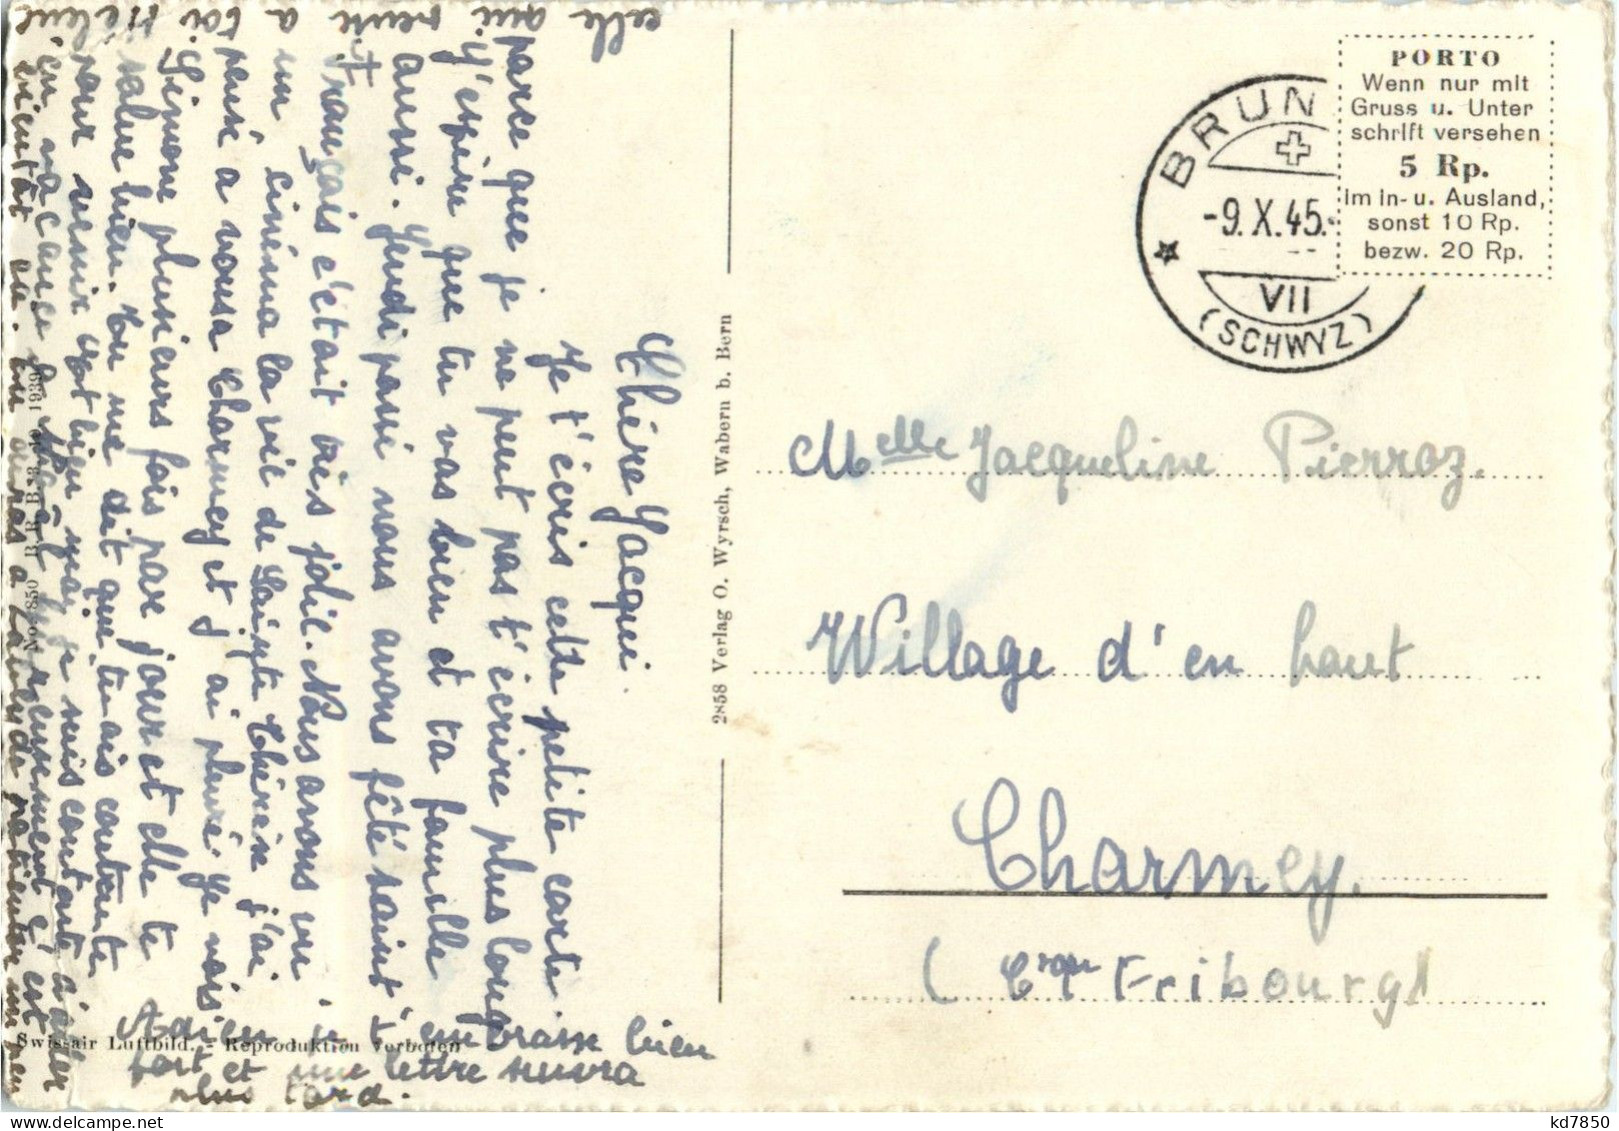 Chére Jacqui.
Je t'écris cette petite carte
parce que je ne peut pas t'écrire plus long
J'espère que tu vas bien et ta famille
aussi. Jeudi passé nous avons fêté saint
Français c'était très jolie. Nous avons vu
un cinéma la vie de Sainte Thérèse j'ai
pensé a vous a Charmey et j'ai pleuré. Je vois
Simone plusieurs fois par jour et elle te
salue bien. Tu me dit que tu ais contente
pour venir
je suis contente d'aller
en vacance
heureusement c'est
bientôt
celle qui
a toi
Adieu je t'embrasse bien
fort et une lettre suivra
plus tard.
Swissair Luftbild. - Reproduktion verboten
No. 7850 B R B 3. 10. 1939
2858 Verlag O. Wyrsch, Wabern b. Bern
PORTO
Wenn nur mit
Gruss u. Unter
schrift versehen
5 Rp.
im in- u. Ausland,
sonst 10 Rp.
bezw. 20 Rp.
BRUN
-9.X.45.-
VII
(SCHWYZ)
Melle Jacqueline Pierroz.
Willage d'en haut
Charmey.
(Cton Fribourg)
kd7850